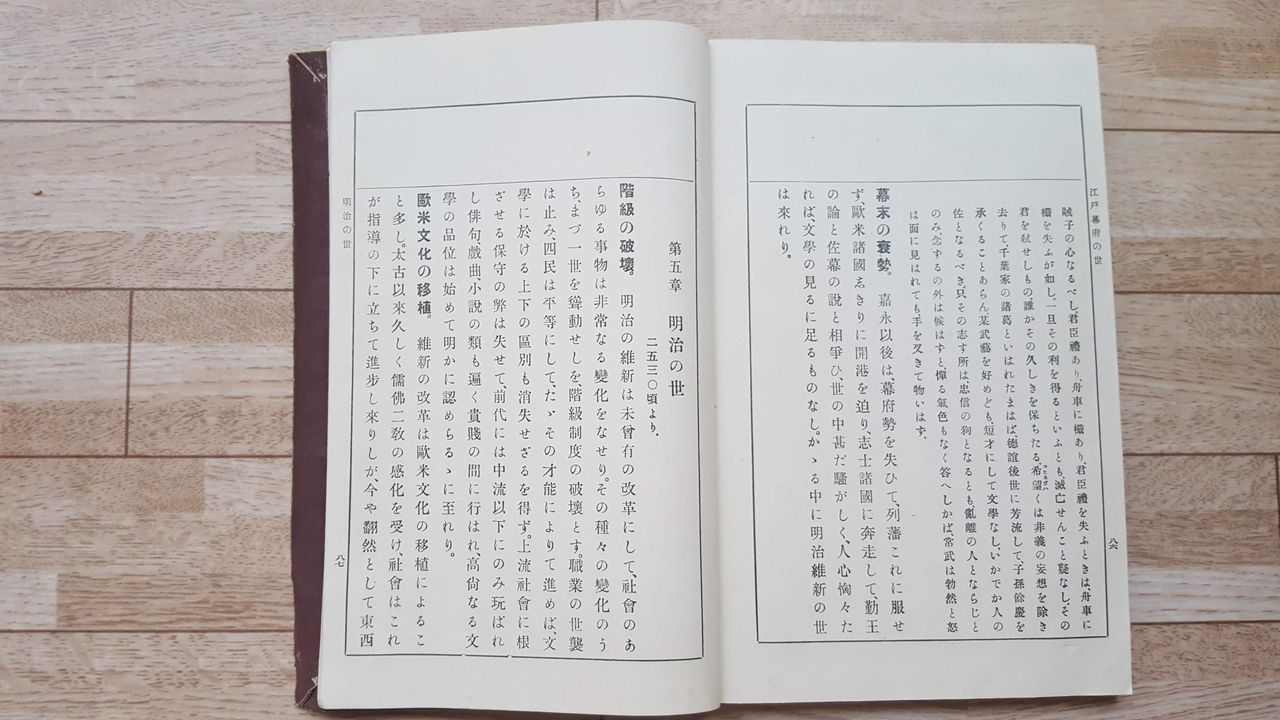 江戸幕府の世
賊子の心なるべし、君臣禮あり、舟車に檝あり、君臣禮を失ふときは、舟車に
檝を失ふが如し、一旦その利を得るといふとも滅亡せんこと疑なし、その
君を弑せしもの誰かその久しきを保ちたる、希望くは非義の妄想を除き
去りて千葉家の諸葛といはれたまはば徳誼後世に芳流して子孫餘慶を
承くることあらん、某武藝を好めども短才にして文學なし、いかでか人の
佐となるべき、只その志す所は忠信の狗となるとも亂離の人とならじと
のみ、念ずるの外は候はずと憚る氣色もなく答へしかば、常武は勃然と怒
は面に見はれても手を叉きて物いはず、
幕末の衰勢。 嘉永以後は幕府勢を失ひて、列藩これに服せ
ず、歐米諸國志きりに開港を迫り、志士諸國に奔走して、勤王
の論と佐幕の說と相爭ひ、世の中甚だ騷がしく、人心恟々た
れば、文學の見るに足るものなし。かゝる中に明治維新の世
は來れり。
八六
第五章 明治の世
二五三〇頃より.
階級の破壞。 明治の維新は未曾有の改革にして、社會のあ
らゆる事物は非常なる變化をなせり。その種々の變化のう
ち、まづ一世を聳動せしを、階級制度の破壞とす。職業の世襲
は止み、四民は平等にして、たゞその才能によりて進めば、文
學に於ける上下の區別も消失せざるを得ず。上流社會に根
ざせる保守の弊は失せて、前代には中流以下にのみ玩ばれ
し俳句戲曲、小說の類も遍く貴賤の間に行はれ、高尙なる文
學の品位は始めて明かに認めらるゝに至れり。
歐米文化の移植。 維新の改革は歐米文化の移植によるこ
と多し。太古以來久しく儒佛二敎の感化を受け、社會はこれ
が指導の下に立ちて進步し來りしが、今や翻然として東西
明治の世
八七